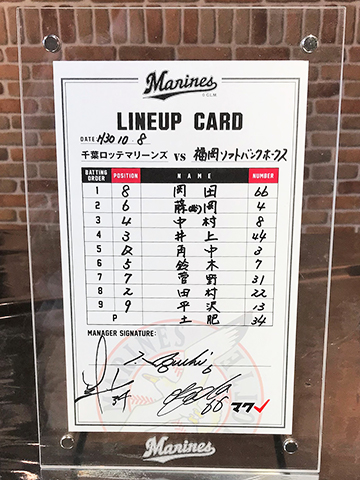 Marines
© C.L.M.
LINEUP CARD
DATE H30 10 8
千葉ロッテマリーンズ VS 福岡ソフトバンクホークス
BATTING ORDER POSITION NAME NUMBER
1 8 岡田 66
2 6 藤岡(裕) 4
3 4 中村 8
4 3 井上 44
5 D 角中 3
6 5 鈴木 7
7 7 菅野 31
8 2 田村 22
9 9 平沢 13
P 土肥 34
MANAGER SIGNATURE:
34
6
66
マク✓
Marines